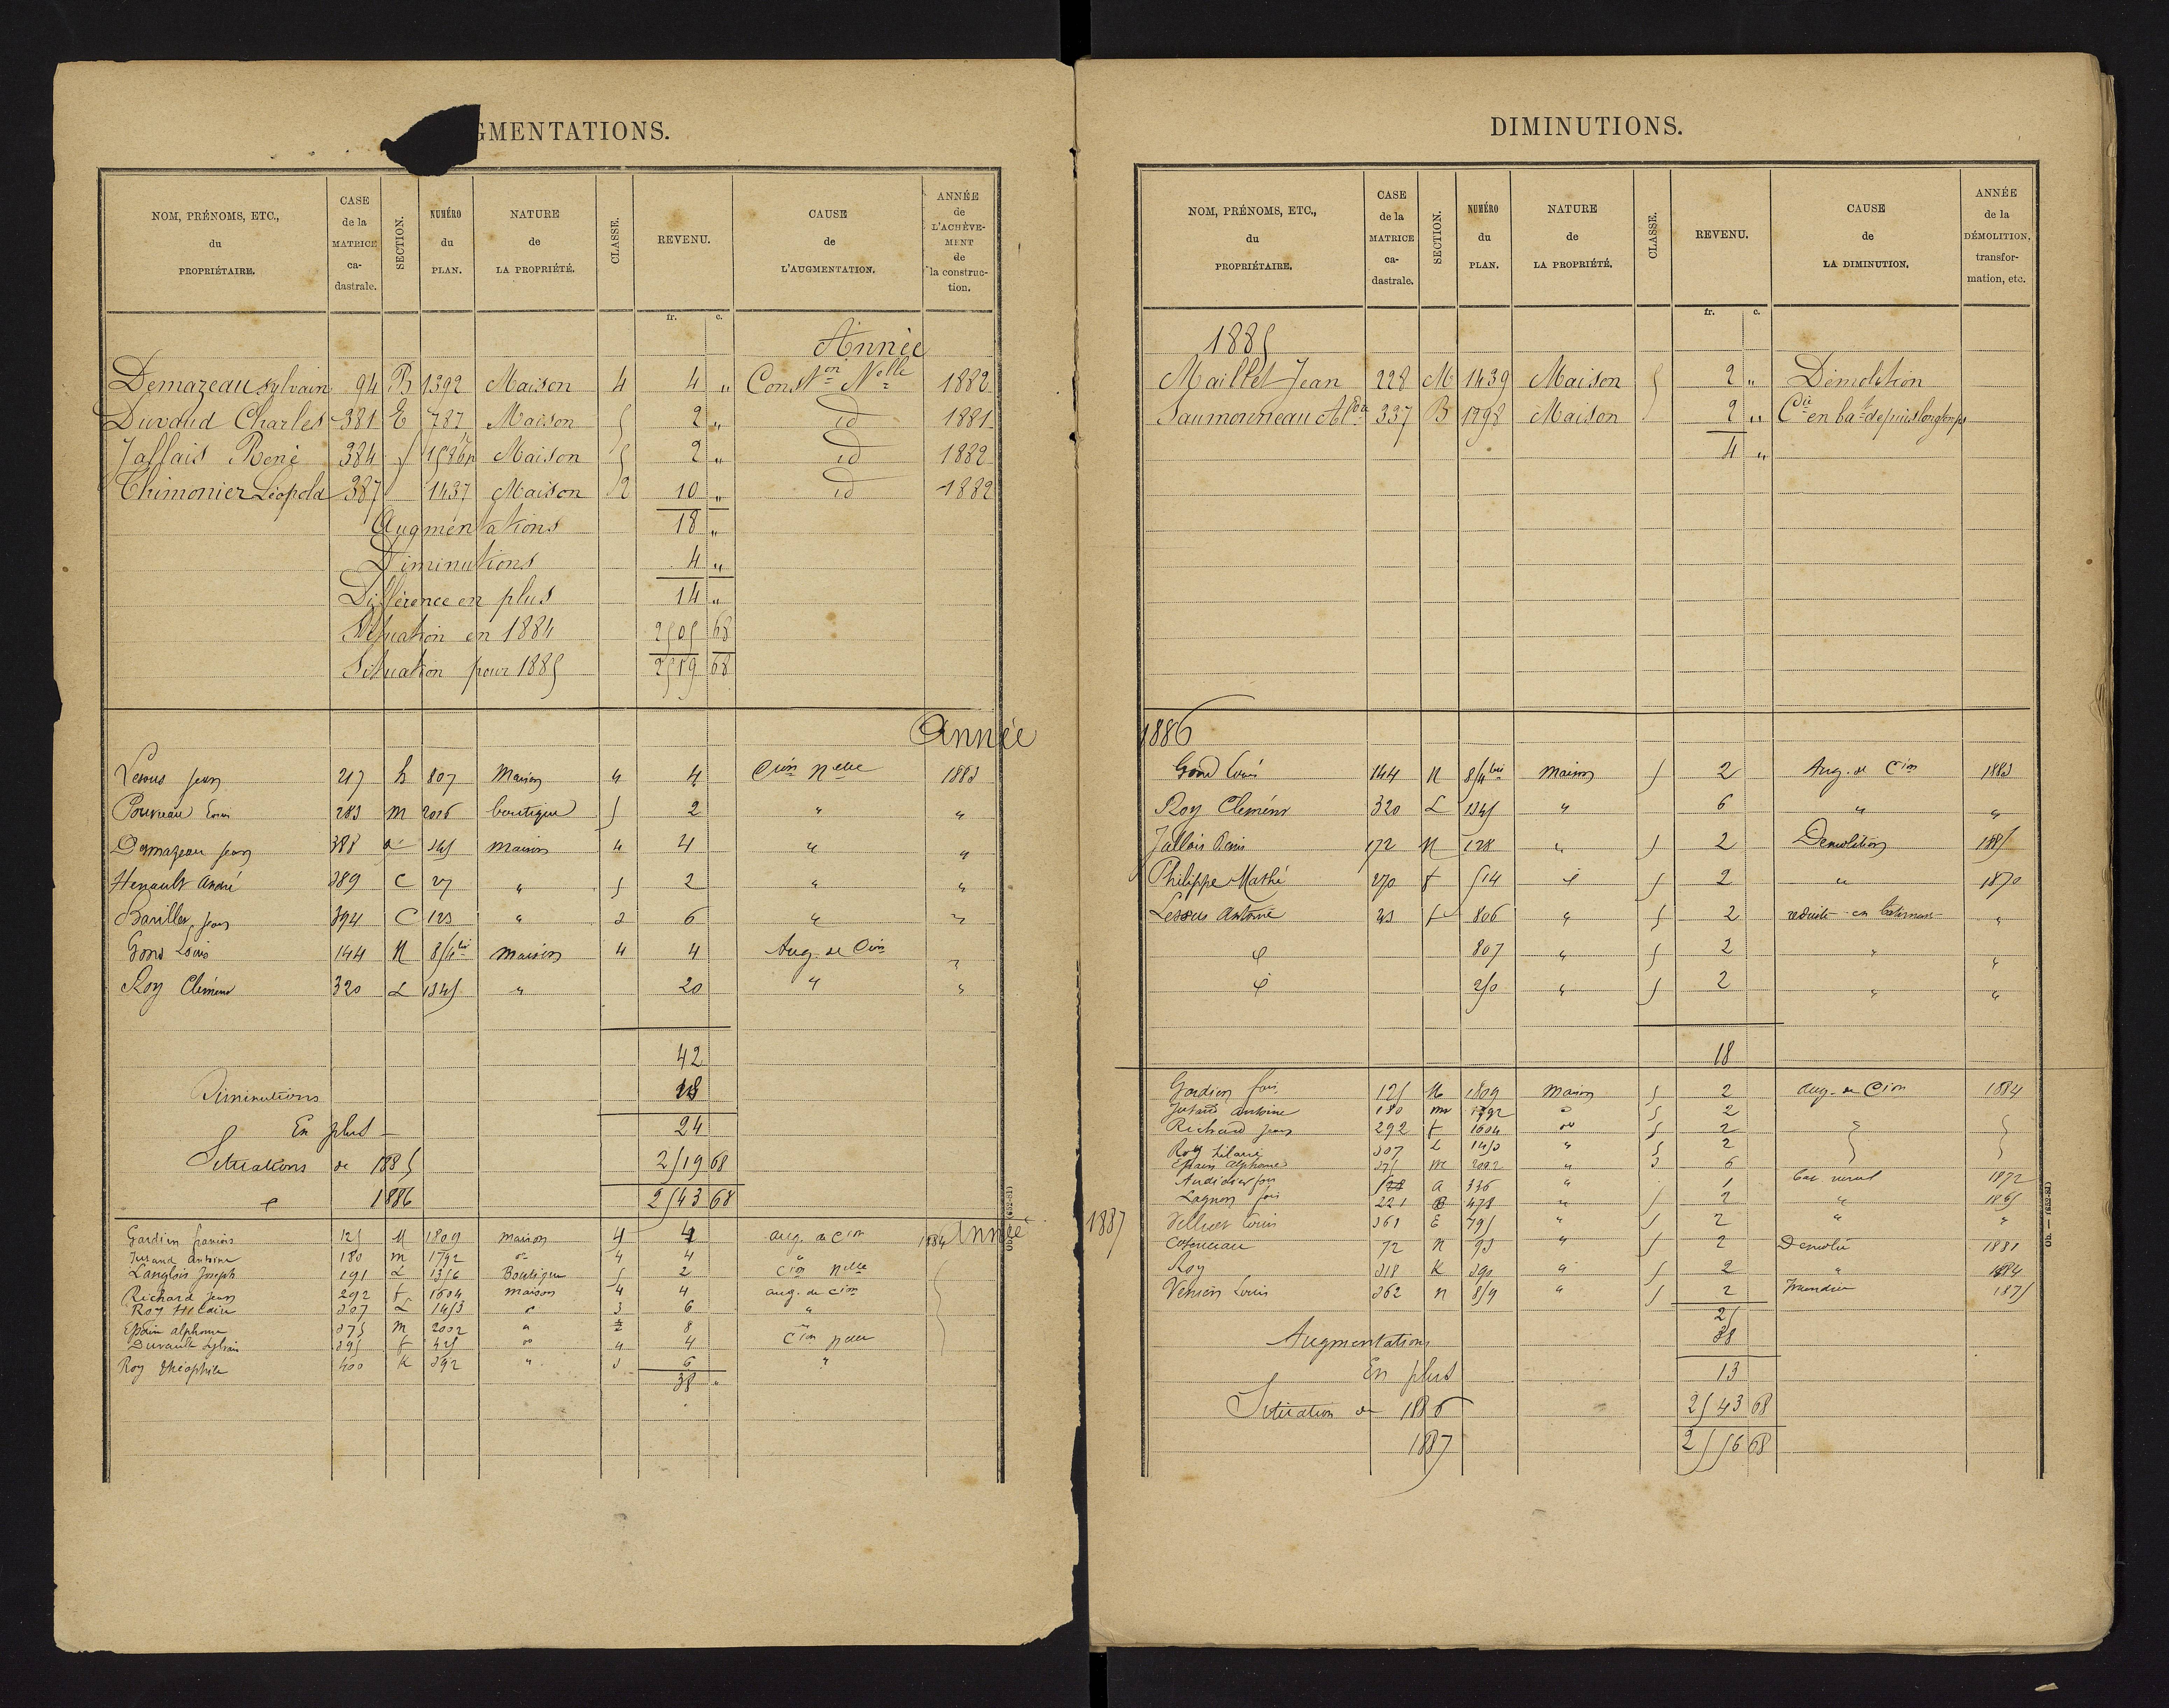 GMENTATIONS.
NOM, PRÉNOMS, ETC., du PROPRIÉTAIRE. CASE de la MATRICE ca-dastrale. SECTION. NUMÉRO du PLAN. NATURE de LA PROPRIÉTÉ. CLASSE. REVENU. CAUSE de L'AUGMENTATION. ANNÉE de L'ACHÈVE-MENT de la construc-tion.
fr. c.
Année
Demazeau sylvain 94 B 1392 Maison 4 4 " Const.on Nelle 1882
Duvaud Charles 381 E 787 Maison 5 2 " id 1881
Jallais René 384 Maison 5 2 " id 1882
Thimonier Léopold 387 1437 Maison 2 10 " id 1882
Augmentations 18 "
Diminutions 4 "
Différence en plus 14 "
Situation en 1884 2505 68
Situation pour 1885 2519 68
Année
Jean 217 h 807 Maison 4 4 Cion Nelle 1883
Louis 283 m 2026 boutique 5 2 " "
Demazeau Jean 388 345 maison 4 4 " "
Henault André 389 C 27 " 5 2 " "
Bariller Jean 394 C 123 " 3 6 " "
Gond Louis 144 N 854 bis maison 4 4 Aug. de Cion "
Roy Clément 320 L 1345 " 20 " "
42
Diminutions 18
En plus 24
Situations de 1885 2519 68
1886 2543 68
Année
Gardien francois 125 M 1809 maison 4 4 aug. de Cion 1884
Antoine 180 m 1792 4 4 "
Langlois Joseph 191 L 1356 Boutique 5 2 Cion Nelle
Richard Jean 292 f 1604 maison 4 4 aug. de Cion
Roy Hilaire 307 L 1453 3 6 "
alphonse 375 m 2002 " 8 "
Duvault Sylvain 395 f 425 4 4 Cion Nelle
Roy théophile 400 K 392 " 3 6 "
38 "
DIMINUTIONS.
NOM, PRÉNOMS, ETC., du PROPRIÉTAIRE. CASE de la MATRICE ca-dastrale. SECTION. NUMÉRO du PLAN. NATURE de LA PROPRIÉTÉ. CLASSE. REVENU. CAUSE de LA DIMINUTION. ANNÉE de la DÉMOLITION, transfor-mation, etc.
fr. c.
1885
Maillet Jean 228 M 1439 Maison 5 2 " Démolition
Saumonneau 337 B 1798 Maison 2 " en bat depuis longtemps
4 "
1886
Gond Louis 144 N 854 bis maison 5 2 Aug. de Cion 1883
Roy Clement 320 L 1345 " 6 " "
Jallais Denis 172 N 128 " 5 2 Demolition 1885
Philippe Mathé 270 f 514 5 2 " 1870
Lessus Antoine 23 f 806 " 5 2 reduite en batiment "
807 " 5 2 " "
250 " 5 2 " "
18
1887
Gardien fois 125 M 1809 maison 5 2 aug. de Cion 1884
antoine 180 m 1792 5 2
Richard Jean 292 f 1604 5 2
Roy hilaire 307 L 1453 " 5 2
alphonse 375 m 2002 " 3 6
Audidier fois A 336 " 1 bat rural 1872
Lagnon fois 221 B 478 " 5 2 " 1865
Louis 361 E 795 " 5 2 " "
72 N 93 " 5 2 Demolie 1881
Roy 318 K 390 " 5 2 " 1884
Louis 362 N 859 " 5 2 Incendie 1875
25
Augmentations 38
En plus 13
Situation de 1886 2543 68
1887 2556 68
Ob. — (652-81)